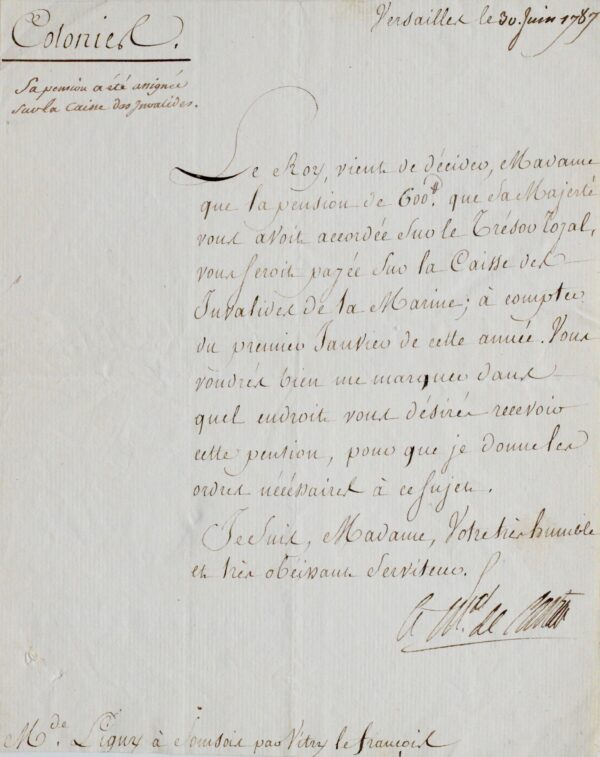 Versailles le 30. Juin 1787
Colonies.
Sa pension a été assignée
sur la Caisse des Invalides.
Le Roy, vient de décider, Madame
que la pension de 600.# que Sa Majesté
vous avoit accordée sur le Trésor Royal,
vous seroit payée sur la Caisse des
Invalides de la Marine; à compter
du premier Janvier de cette année. Vous
voudrés bien me marquer dans
quel endroit vous désirés recevoir
cette pension, pour que je donne les
ordres nécéssaires à ce sujet.
Je suis, Madame, Votre très humble
et très obéissant Serviteur.
le M.al de Castries
M.de Ligny à Somsois par Vitry le françois